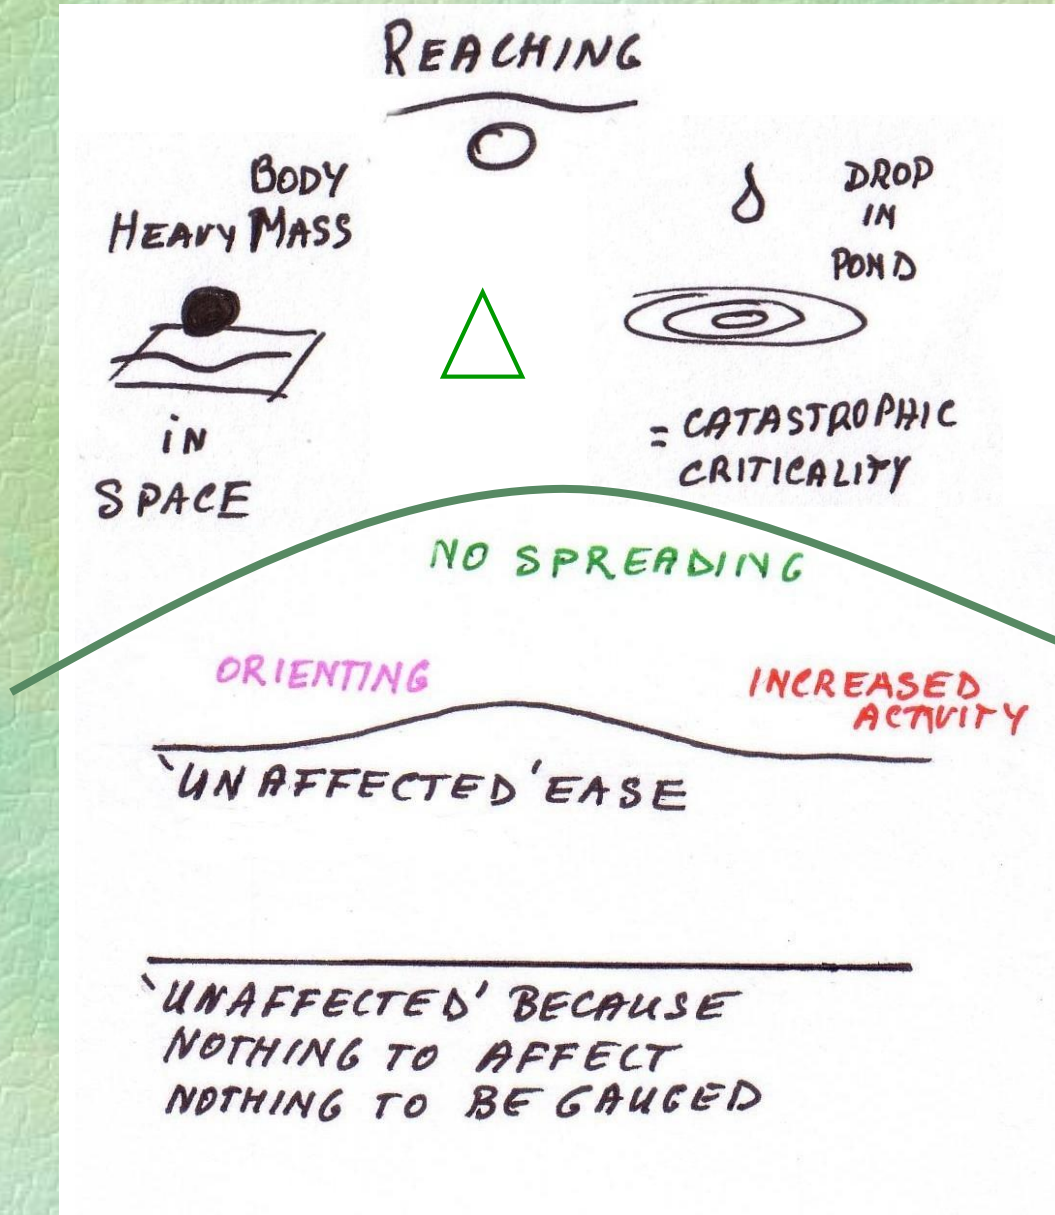 REACHING
BODY
HEAVY MASS
iN
SPACE
DROP
IN
POND
= CATASTROPHIC
CRITICALITY
NO SPREADING
ORIENTING
INCREASED
ACTIVITY
'UNAFFECTED' EASE
'UNAFFECTED' BECAUSE
NOTHING TO AFFECT
NOTHING TO BE GAUGED